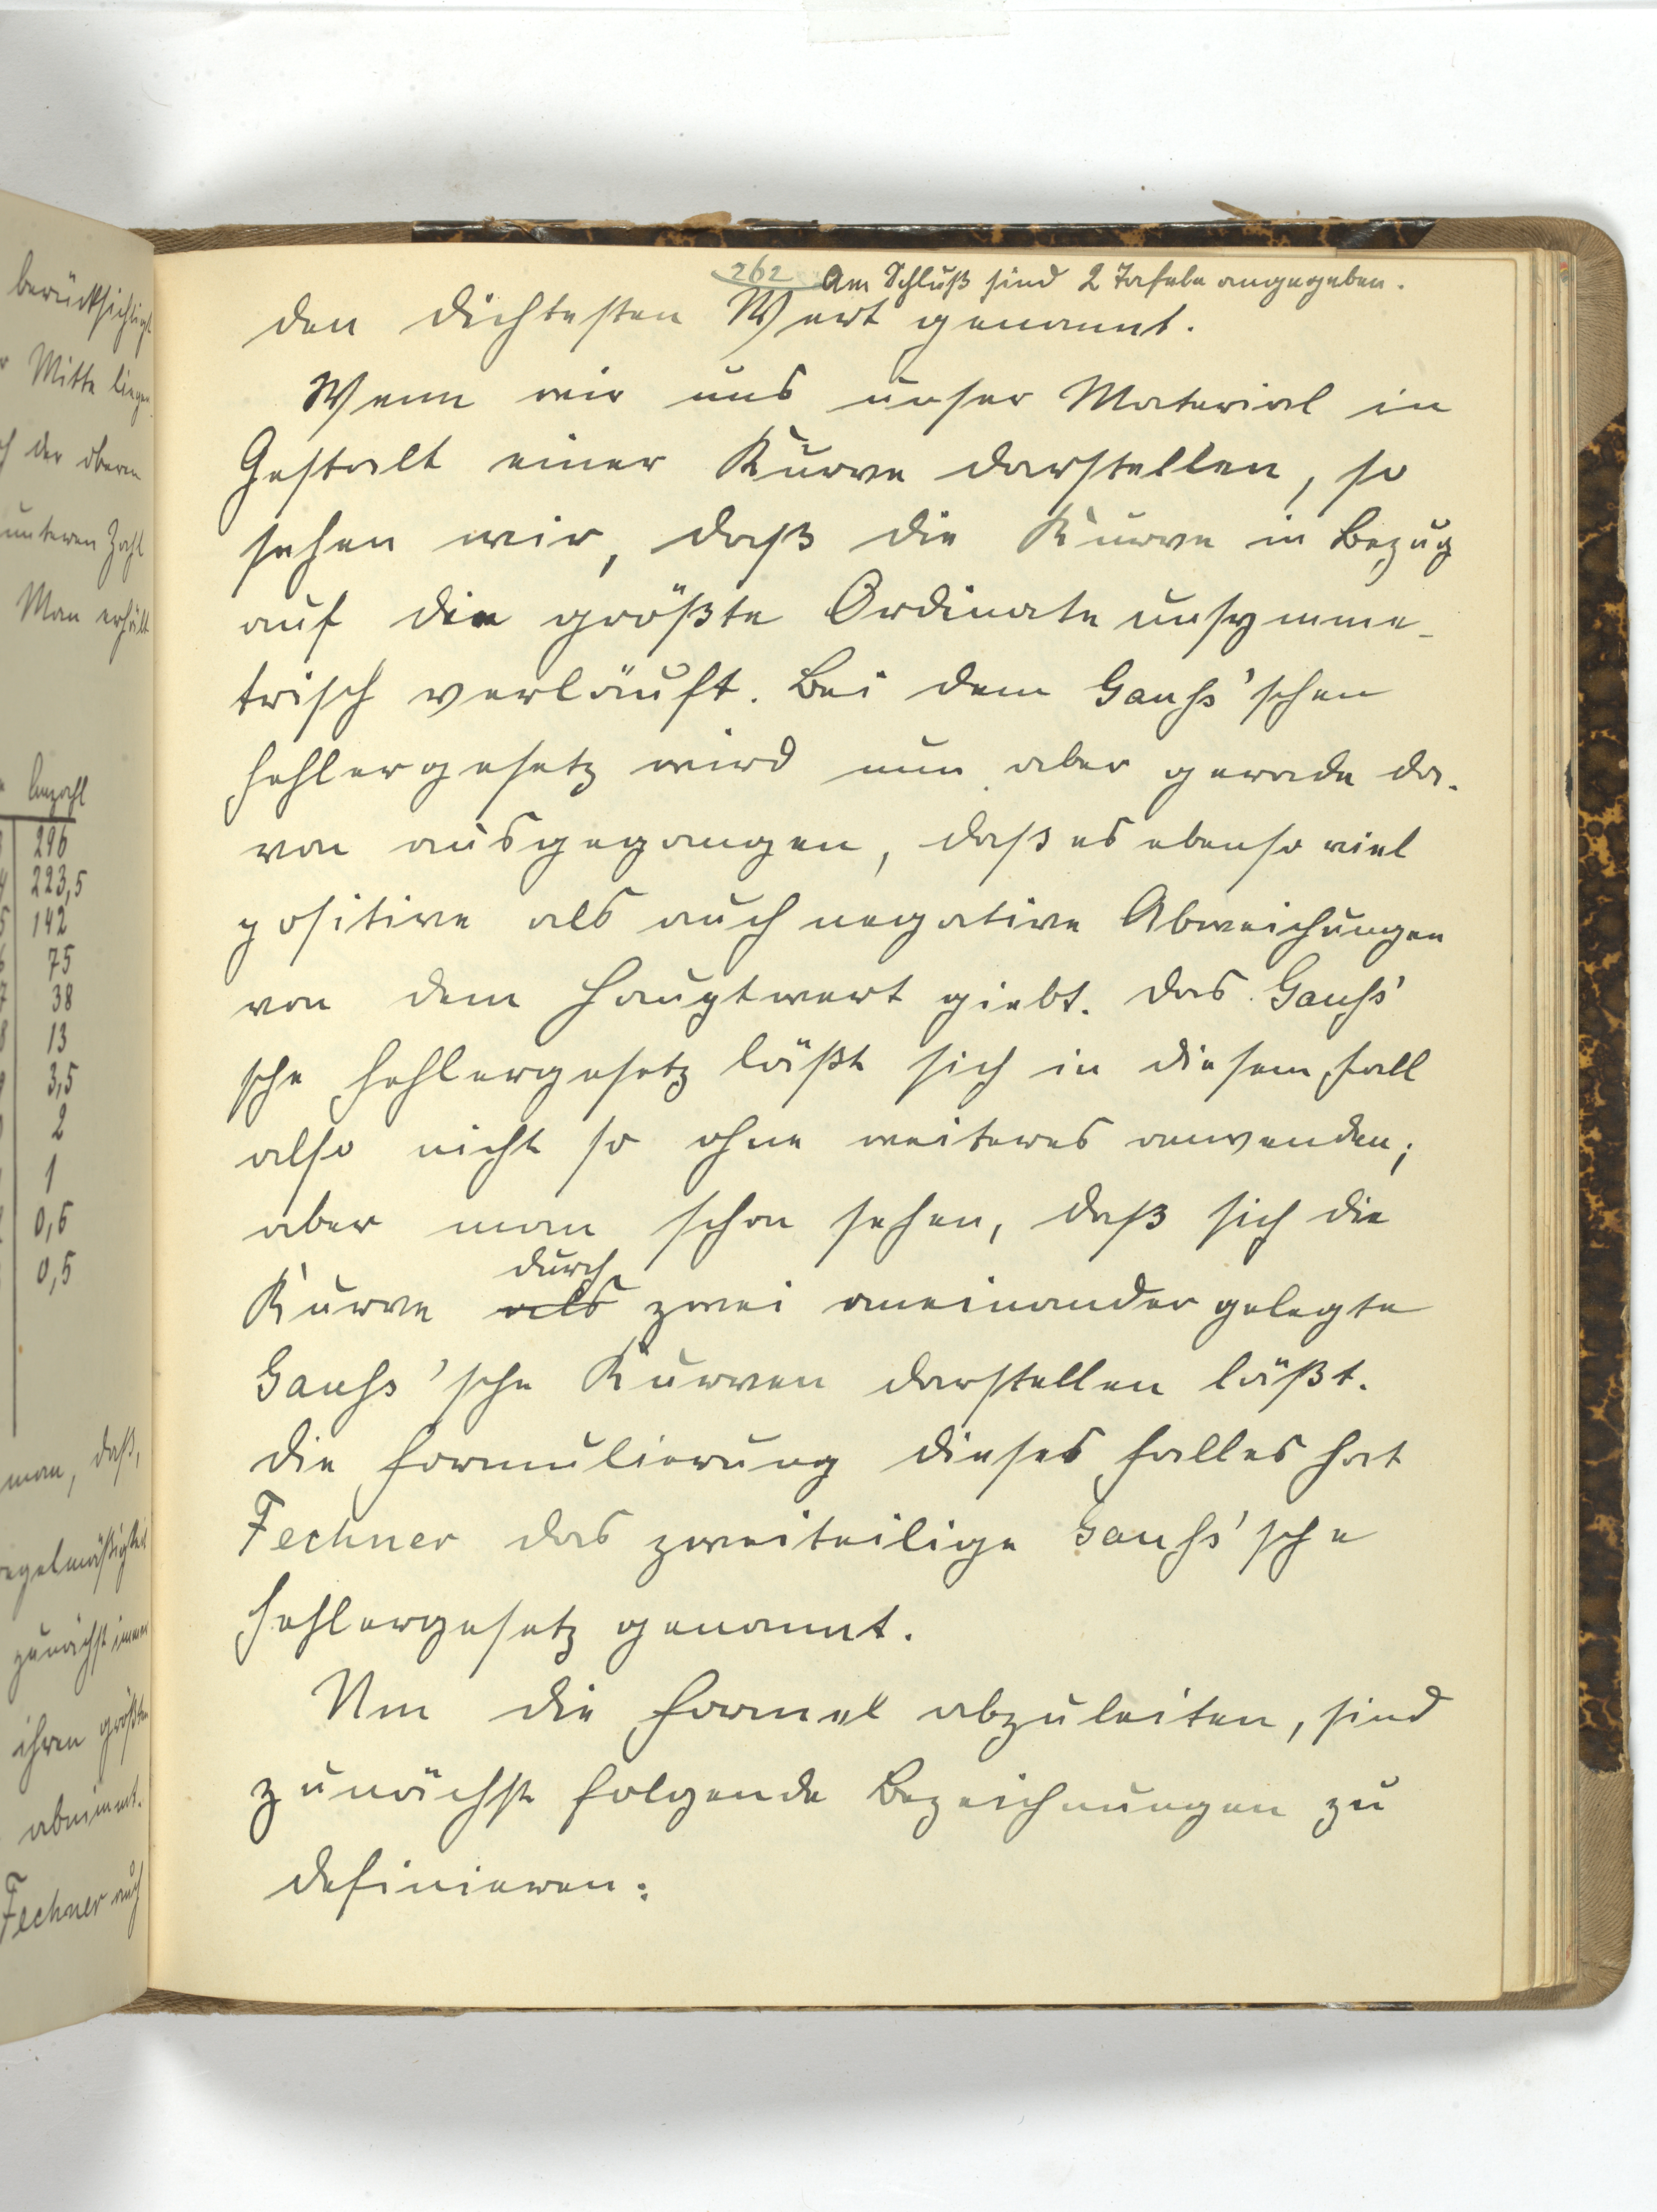 berücksichtigt
Mitte liegen
der oberen
unteren Zahl
Man erhält
Anzahl
296
223,5
142
75
38
13
3,5
2
1
0,5
0,5
man, daß,
regelmäßigkeit
zunächst immer
ihren größten
abnimmt.
Fechner auch
262 Am Schluß sind 2 Tafeln angegeben.
den dichtesten Wert genannt.
Wenn wir uns unser Material in
Gestalt einer Kurve darstellen, so
sehen wir, daß die Kurve in Bezug
auf die größte Ordinate unsymme-
trisch verläuft. Bei dem Gauss'schen
Fehlergesetz wird nun aber gerade da-
von ausgegangen, daß es ebenso viel
positive als auch negative Abweichungen
von dem Hauptwert giebt. Das Gauss'
sche Fehlergesetz läßt sich in diesem Fall
also nicht so ohne weiteres anwenden;
aber man schon sehen, daß sich die
durch
Kurve als zwei aneinander gelegte
Gauss'sche Kurven darstellen läßt.
Die Formulierung dieses Falles hat
Fechner das zweiteilige Gauss'sche
Fehlergesetz genannt.
Um die Formel abzuleiten, sind
zunächst folgende Bezeichnungen zu
definieren: